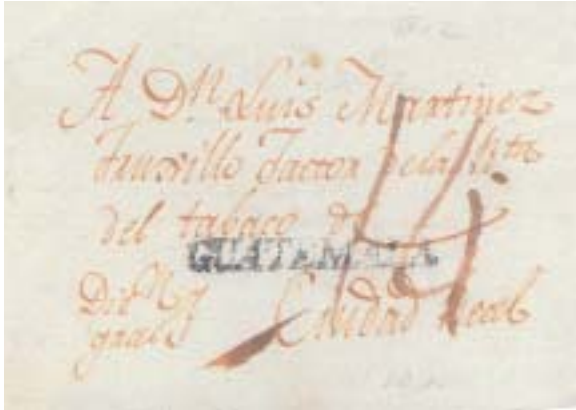 A Dn. Luis Martinez
Truxillo Factor de la Rta
del tabaco de
GUATEMALA
Dirn
gral Ciudad Real